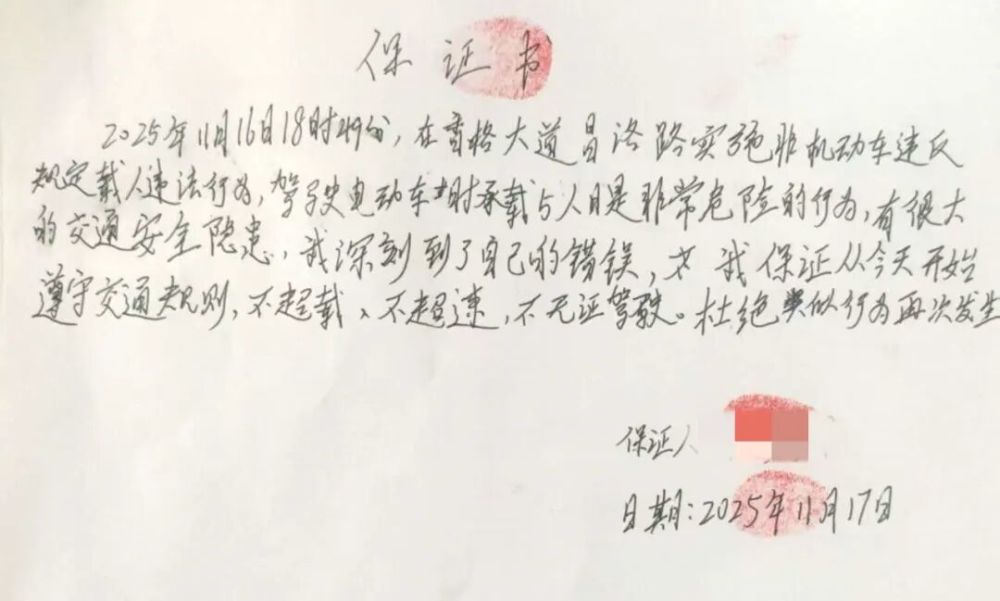 保证书
2025年11月16日18时49份，在香格大道昌洛路实施非机动车违反
规定载人违法行为，驾驶电动车时承载与人日是非常危险的行为，有很大
的交通安全隐患，我深刻到了自己的错误，我保证从今天开始
遵守交通规则，不超载、不超速，不无证驾驶。杜绝类似行为再次发生
保证人
日期：2025年11月17日